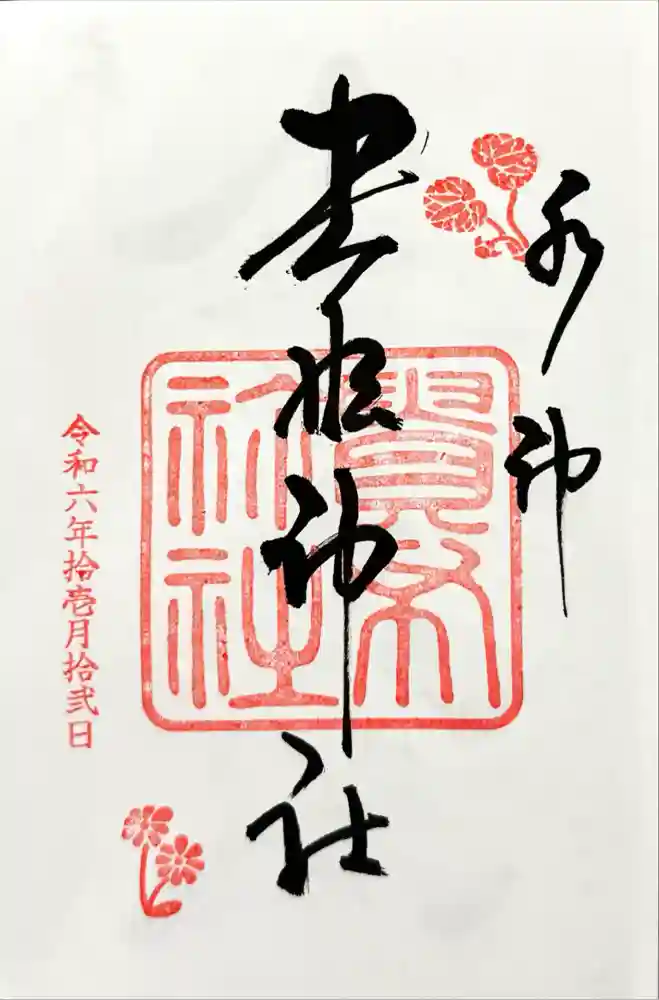 水神
貴船神社
貴布
祢社
令和六年拾壱月拾弐日